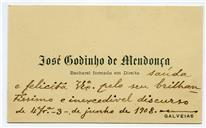 José Godinho de Mendonça
Bacharel formado em Direito
sauda
e felicita V. Ex.ª pelo seu brilhan-
tissimo e inexcedivel discurso
de 3 de junho de 1908.
GALVEIAS